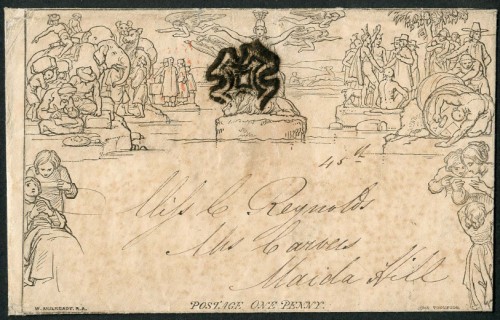 45th
Miss C Reynolds
Mrs Carvers
Maida Hill
POSTAGE ONE PENNY.
W. MULREADY, R.A.
JOHN THOMPSON